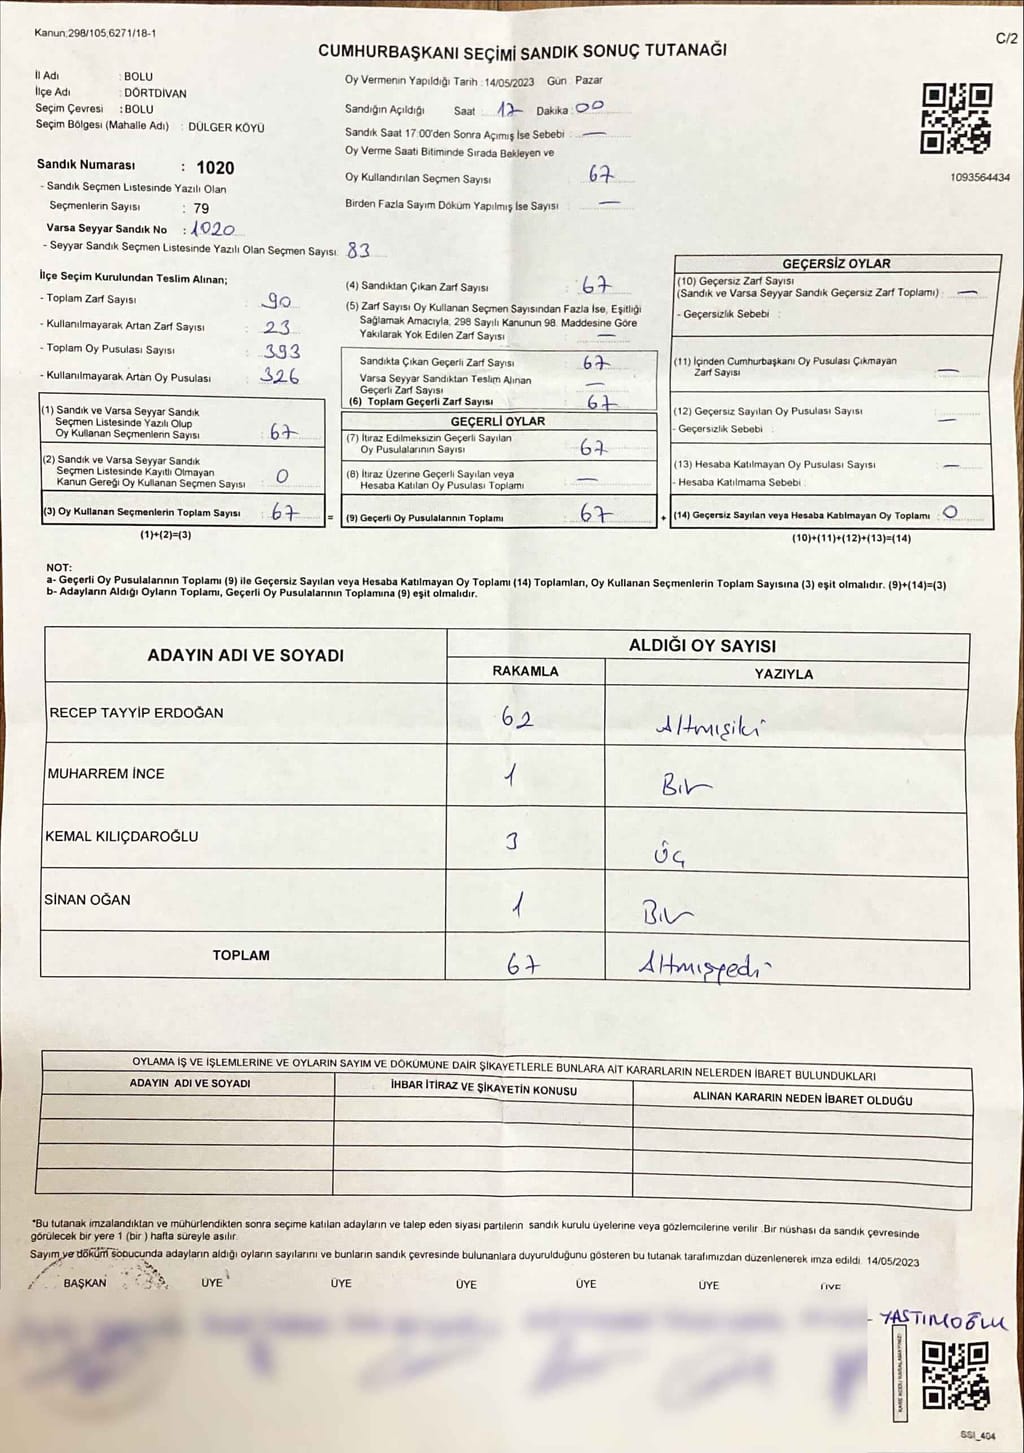 Kanun;298/105,6271/18-1
C/2
CUMHURBAŞKANI SEÇİMİ SANDIK SONUÇ TUTANAĞI
İl Adı : BOLU
İlçe Adı : DÖRTDİVAN
Seçim Çevresi : BOLU
Seçim Bölgesi (Mahalle Adı) : DÜLGER KÖYÜ
Sandık Numarası : 1020
- Sandık Seçmen Listesinde Yazılı Olan
Seçmenlerin Sayısı : 79
Varsa Seyyar Sandık No : 1020
- Seyyar Sandık Seçmen Listesinde Yazılı Olan Seçmen Sayısı 83
Oy Vermenin Yapıldığı Tarih : 14/05/2023 Gün : Pazar
Sandığın Açıldığı Saat : 17 Dakika : 00
Sandık Saat 17:00'den Sonra Açımış İse Sebebi : —
Oy Verme Saati Bitiminde Sırada Bekleyen ve
Oy Kullandırılan Seçmen Sayısı 67
Birden Fazla Sayım Döküm Yapılmış İse Sayısı —
1093564434
İlçe Seçim Kurulundan Teslim Alınan;
- Toplam Zarf Sayısı 90
- Kullanılmayarak Artan Zarf Sayısı 23
- Toplam Oy Pusulası Sayısı 393
- Kullanılmayarak Artan Oy Pusulası 326
(1) Sandık ve Varsa Seyyar Sandık
Seçmen Listesinde Yazılı Olup
Oy Kullanan Seçmenlerin Sayısı 67
(2) Sandık ve Varsa Seyyar Sandık
Seçmen Listesinde Kayıtlı Olmayan
Kanun Gereği Oy Kullanan Seçmen Sayısı 0
(3) Oy Kullanan Seçmenlerin Toplam Sayısı 67
(1)+(2)=(3)
(4) Sandıktan Çıkan Zarf Sayısı 67
(5) Zarf Sayısı Oy Kullanan Seçmen Sayısından Fazla İse, Eşitliği
Sağlamak Amacıyla, 298 Sayılı Kanunun 98. Maddesine Göre
Yakılarak Yok Edilen Zarf Sayısı —
Sandıkta Çıkan Geçerli Zarf Sayısı 67
Varsa Seyyar Sandıktan Teslim Alınan
Geçerli Zarf Sayısı —
(6) Toplam Geçerli Zarf Sayısı 67
GEÇERLİ OYLAR
(7) İtiraz Edilmeksizin Geçerli Sayılan
Oy Pusulalarının Sayısı 67
(8) İtiraz Üzerine Geçerli Sayılan veya
Hesaba Katılan Oy Pusulası Toplamı —
= (9) Geçerli Oy Pusulalarının Toplamı 67 +
GEÇERSİZ OYLAR
(10) Geçersiz Zarf Sayısı
(Sandık ve Varsa Seyyar Sandık Geçersiz Zarf Toplamı) : —
- Geçersizlik Sebebi :
(11) İçinden Cumhurbaşkanı Oy Pusulası Çıkmayan
Zarf Sayısı —
(12) Geçersiz Sayılan Oy Pusulası Sayısı —
- Geçersizlik Sebebi :
(13) Hesaba Katılmayan Oy Pusulası Sayısı —
- Hesaba Katılmama Sebebi :
(14) Geçersiz Sayılan veya Hesaba Katılmayan Oy Toplamı : 0
(10)+(11)+(12)+(13)=(14)
NOT:
a- Geçerli Oy Pusulalarının Toplamı (9) ile Geçersiz Sayılan veya Hesaba Katılmayan Oy Toplamı (14) Toplamları, Oy Kullanan Seçmenlerin Toplam Sayısına (3) eşit olmalıdır. (9)+(14)=(3)
b- Adayların Aldığı Oyların Toplamı, Geçerli Oy Pusulalarının Toplamına (9) eşit olmalıdır.
ADAYIN ADI VE SOYADI
ALDIĞI OY SAYISI
RAKAMLA YAZIYLA
RECEP TAYYİP ERDOĞAN 62 Altmışiki
MUHARREM İNCE 1 Bir
KEMAL KILIÇDAROĞLU 3 Üç
SİNAN OĞAN 1 Bir
TOPLAM 67 Altmışyedi
OYLAMA İŞ VE İŞLEMLERİNE VE OYLARIN SAYIM VE DÖKÜMÜNE DAİR ŞİKAYETLERLE BUNLARA AİT KARARLARIN NELERDEN İBARET BULUNDUKLARI
ADAYIN ADI VE SOYADI İHBAR İTİRAZ VE ŞİKAYETİN KONUSU ALINAN KARARIN NEDEN İBARET OLDUĞU
*Bu tutanak imzalandıktan ve mühürlendikten sonra seçime katılan adayların ve talep eden siyasi partilerin sandık kurulu üyelerine veya gözlemcilerine verilir .Bir nüshası da sandık çevresinde
görülecek bir yere 1 (bir ) hafta süreyle asılır.
Sayım ve döküm sonucunda adayların aldığı oyların sayılarını ve bunların sandık çevresinde bulunanlara duyurulduğunu gösteren bu tutanak tarafımızdan düzenlenerek imza edildi. 14/05/2023
BAŞKAN ÜYE ÜYE ÜYE ÜYE ÜYE ÜYE
YASTIMOĞLU
KARE KODU KARALAMAYINIZ!
SSI_404